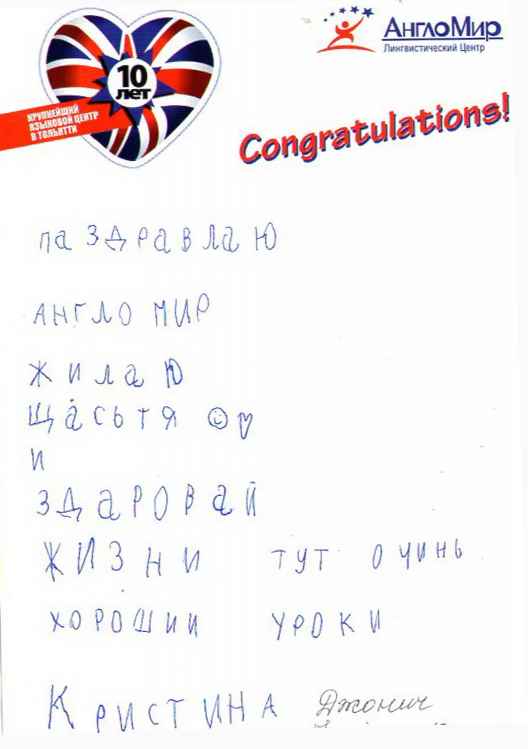 10
лет
КРУПНЕЙШИЙ
ЯЗЫКОВОЙ ЦЕНТР
В ТОЛЬЯТТИ
АнглоМир
Лингвистический Центр
Congratulations!
паздравлаю
англо мир
жилаю
щасьтя
и
здаровай
жизни тут очинь
хорошии уроки
Кристина Джонич